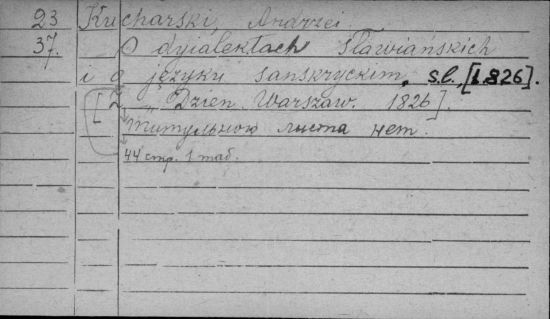 23 Kucharski, Andrzei.
37. O dyialektach sławiańskich
i o języku sanskryckim, s.l., [1826].
[Z „Dzien. Warszaw. 1826].
Титульного листа нет.
44 стр. 1 таб.